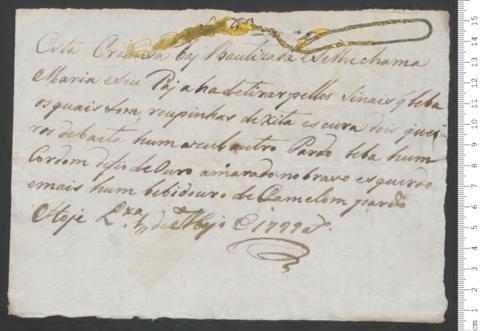 Esta Criansa baj Bautizada e selhe chama
Maria e seu Paj a hadetirar pellos sinaes q leba
os quais som, roupinhas de xita escura dois quei-
ros debaeta hum azul outro Pardo leba hum
Cordom defio de Ouro amarado no braso esquerdo
emais hum bibidouro de Camelom pardo
Hoje Lxa de Majo 1799